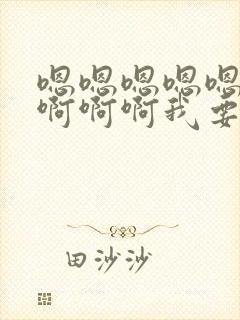 嗯嗯嗯嗯嗯
啊啊啊我要
田沙沙